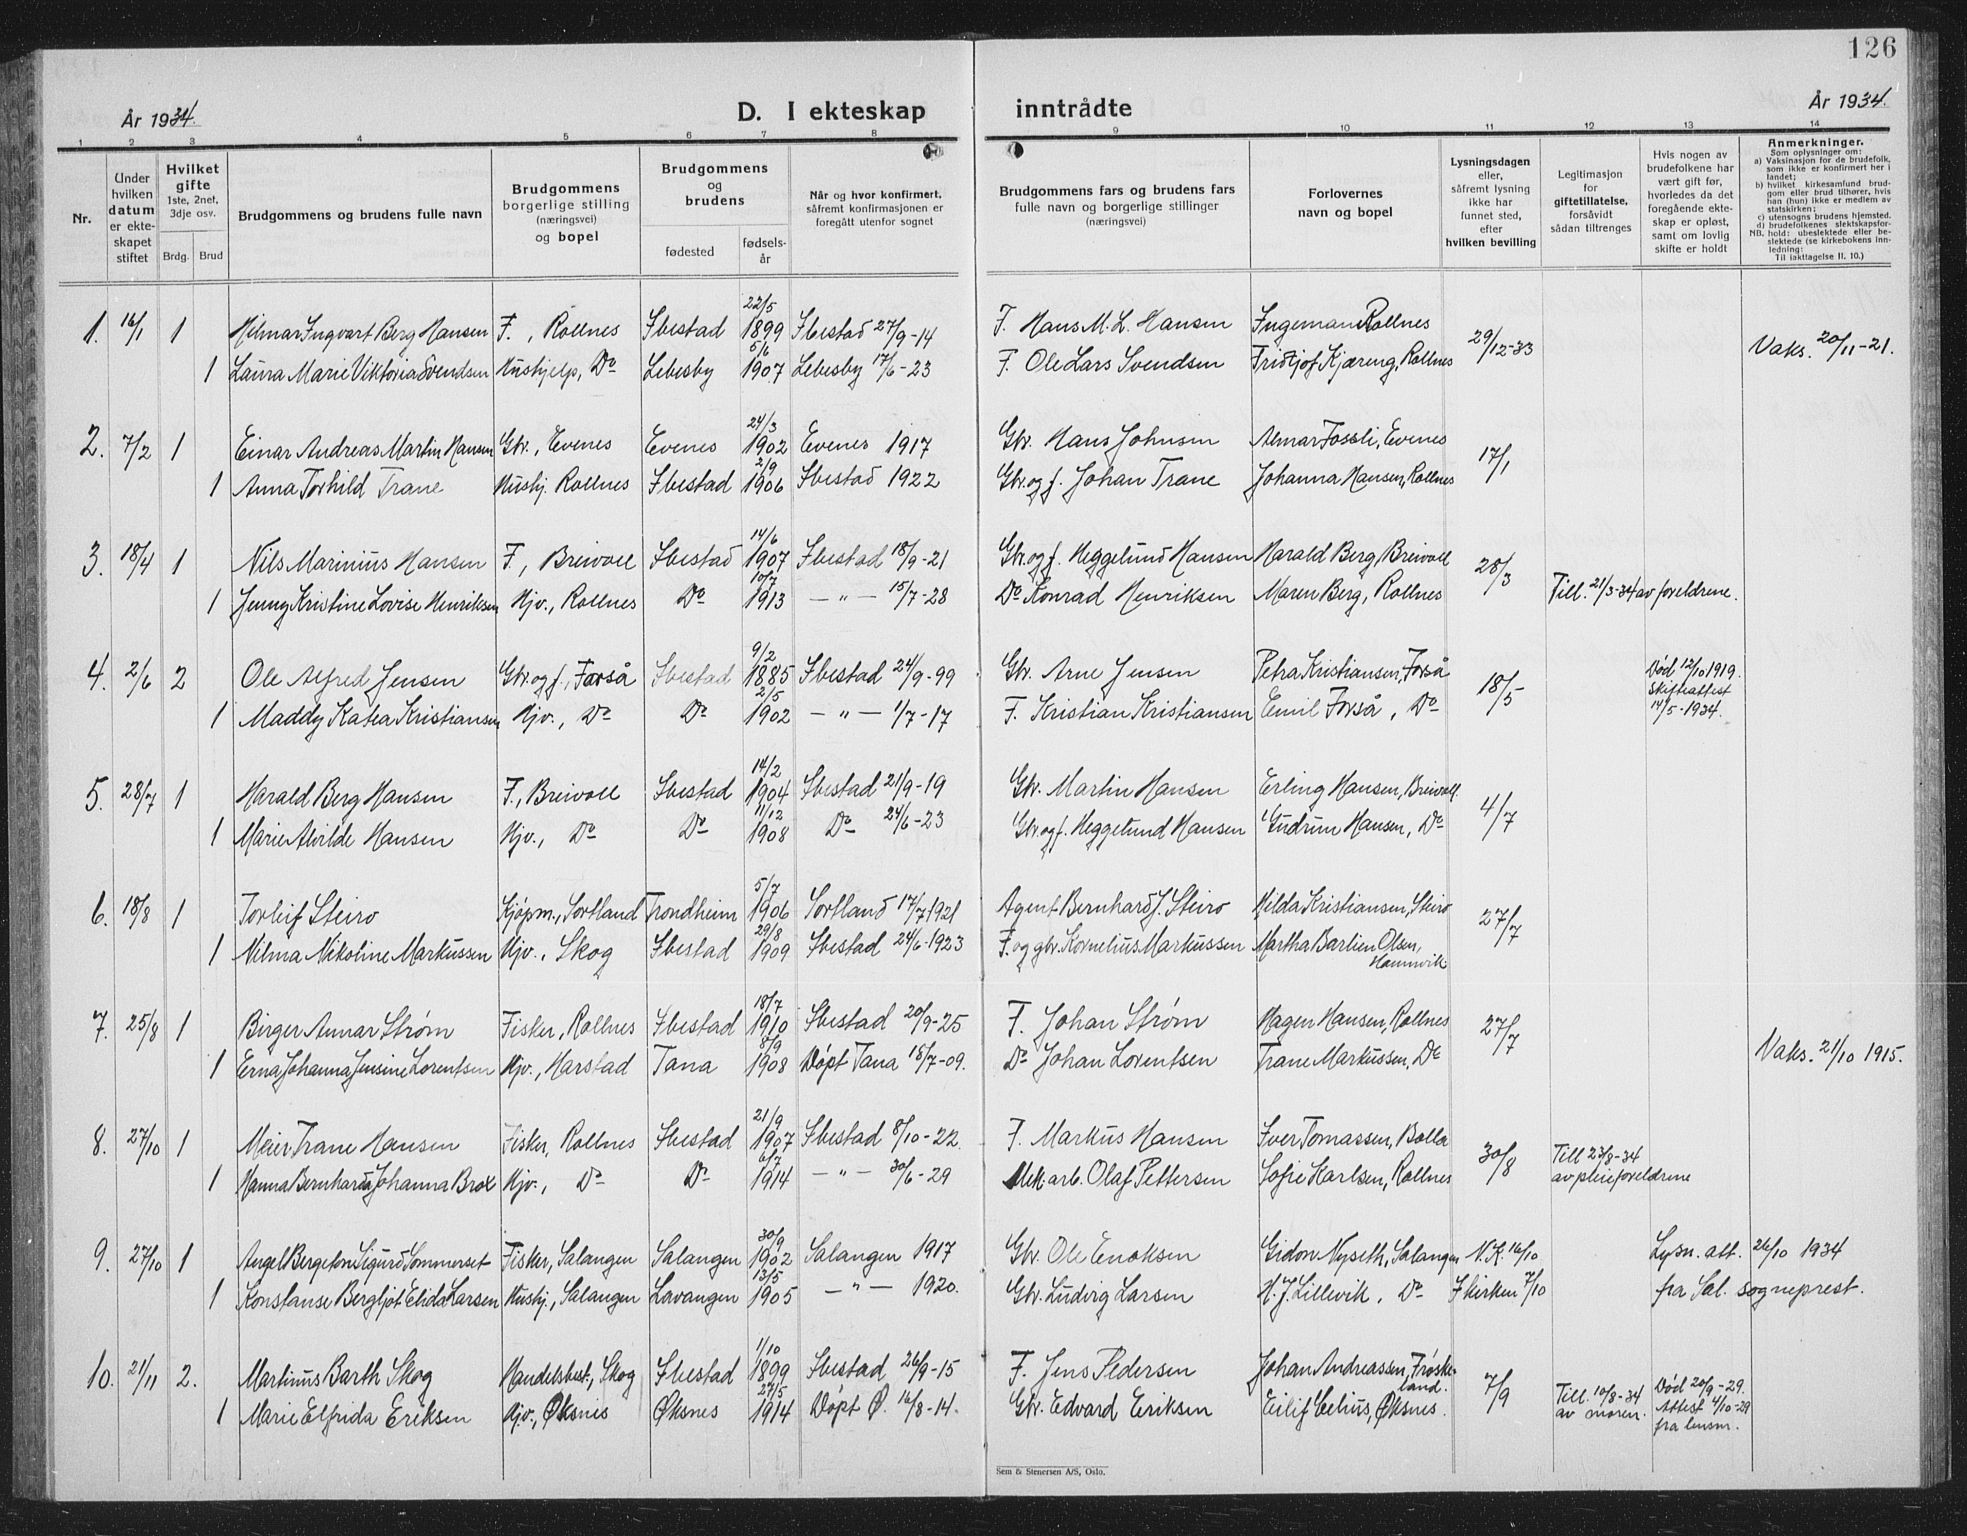 126
År 1934.
D. I ekteskap inntrådte
År 1934.
1 2 3 4 5 6 7 8 9 10 11 12 13 14
Nr.
Under hvilken datum er ekteskapet stiftet
Hvilket gifte 1ste, 2net, 3dje osv.
Brdg. Brud
Brudgommens og brudens fulle navn
Brudgommens borgerlige stilling (næringsvei) og bopel
Brudgommens og brudens
fødested
fødselsår
Når og hvor konfirmert, såfremt konfirmasjonen er foregått utenfor sognet
Brudgommens fars og brudens fars fulle navn og borgerlige stillinger (næringsvei)
Forlovernes navn og bopel
Lysningsdagen eller, såfremt lysning ikke har funnet sted, efter hvilken bevilling
Legitimasjon for giftetillatelse, forsåvidt sådan tiltrenges
Hvis nogen av brudefolkene har vært gift før, hvorledes da det foregående ekteskap er opløst, samt om lovlig skifte er holdt
Anmerkninger.
Som oplysninger om:
a) Vaksinasjon for de brudefolk, som ikke er konfirmert her i landet;
b) hvilket kirkesamfund brudgom eller brud tilhører, hvis han (hun) ikke er medlem av statskirken;
c) utensogns brudens hjemsted.
d) brudefolkenes slektskapsforhold: ubeslektede eller beslektede (se kirkebokens innledning:
NB.
Til iakttagelse II. 10.)
1. 16/1 1 Hilmar Ingvart Berg Hansen F., Rollnes Ibestad 22/5 1899 Ibestad 27/9-14 F. Hans M. L. Hansen Ingeman Rollnes 29/12-33
1 Laura Marie Viktoria Svendsen Hushjelp, Do Lebesby 5/6 1907 Lebesby 17/6-23 F. Ole Lars Svendsen Fridtjof Kjæreng, Rollnes Vaks. 20/11-21.
2. 7/2 1 Einar Andreas Martin Hansen Gbr., Evenes Evenes 24/3 1902 Evenes 1917 Gbr. Hans Johnsen Almar Fossli, Evenes 17/1
1 Anna Torhild Trane Hushj. Rollnes Ibestad 2/9 1906 Ibestad 1922 Gbr. og f. Johan Trane Johanna Hansen, Rollnes
3. 18/4 1 Nils Marinius Hansen F., Breivoll Ibestad 14/6 1907 Ibestad 18/9-21 Gbr. og f. Heggelund Hansen Harald Berg, Breivoll 28/3
1 Jenny Kristine Lovise Henriksen Hjv., Rollnes Do 10/7 1913 — " — 15/7-28 Do Konrad Henriksen Maren Berg, Rollnes Till. 21/3-34 av foreldrene.
4. 2/6 2 Ole Alfred Jensen Gbr. og f., Forså Ibestad 9/2 1885 Ibestad 24/9-99 Gbr. Arne Jensen Petra Kristiansen, Forså 18/5 Død 12/10 1919. Skifteattest 14/5-1934.
1 Maddy Katea Kristiansen Hjv., Do Do 2/5 1902 — " — 1/7-17 F. Kristian Kristiansen Emil Forså, Do
5. 28/7 1 Harald Berg Hansen F., Breivoll Ibestad 14/2 1904 Ibestad 21/9-19 Gbr. Martin Hansen Erling Hansen, Breivoll. 4/7
1 Marie Alvilde Hansen Hjv., Do Do 11/12 1908 Do 24/6-23 Gbr. og f. Heggelund Hansen Gudrun Hansen, Do
6. 18/8 1 Torleif Steiro Kjøpm., Sortland Trondheim 5/7 1906 Sortland 17/7 1921 Agent Bernhard J. Steiro Hilda Kristiansen, Steiro 27/7
1 Nilma Nikoline Markussen Hjv., Skog Ibestad 29/8 1909 Ibestad 24/6-1923 F. og gbr. Kornelius Markussen Martha Barlien Olsen, Hamnvik
7. 25/8 1 Birger Annar Strøm Fisker, Rollnes Ibestad 18/7 1910 Ibestad 20/9-25 F. Johan Strøm Hagen Hansen, Rollnes 27/7
1 Erna Johanna Jensine Lorentsen Hjv., Harstad Tana 8/9 1908 Døpt Tana 18/7-09. Do Johan Lorentsen Trane Markussen, Do Vaks. 21/10 1915.
8. 27/10 1 Meier Trane Hansen Fisker, Rollnes Ibestad 21/9 1907 Ibestad 8/10-22. F. Markus Hansen Iver Tomassen, Bolla 30/8 Till 23/8-34 av pleieforeldrene
1 Hanna Bernharda Johanna Brox Hjv., Do Do 6/7 1914 — " — 30/6-29 Mek. arb. Olaf Pettersen Sofie Karlsen, Rollnes
9. 27/10 1 Angel Bergeton Sigurd Sommerset Fisker, Salangen Salangen 30/9 1902 Salangen 1917 Gbr. Ole Enoksen Gidon Nyseth, Salangen N. K. 16/10 Lysn. att. 26/10 1934
1 Konstanse Bergljot Elida Larsen Hushj., Salangen Lavangen 13/5 1905 — " — 1920. Gbr. Ludvig Larsen H. J. Lillevik, Do I kirken 7/10 fra Sal. sogneprest.
10. 21/11 2. Martinus Barth Skog Handelsbest., Skog Ibestad 1/10 1899 Ibestad 26/9-15 F. Jens Pedersen Johan Andreassen, Frøskeland. 7/9
1 Marie Elfrida Eriksen Hjv., Øksnes Øksnes 27/5 1914 Døpt Ø. 16/8-14. Gbr. Edvard Eriksen Eilif Celius, Øksnes. Till. 10/8-34 av moren. Død 20/9-29. Attest 4/10-29 fra lensm.
Sem & Stenersen A/S, Oslo.